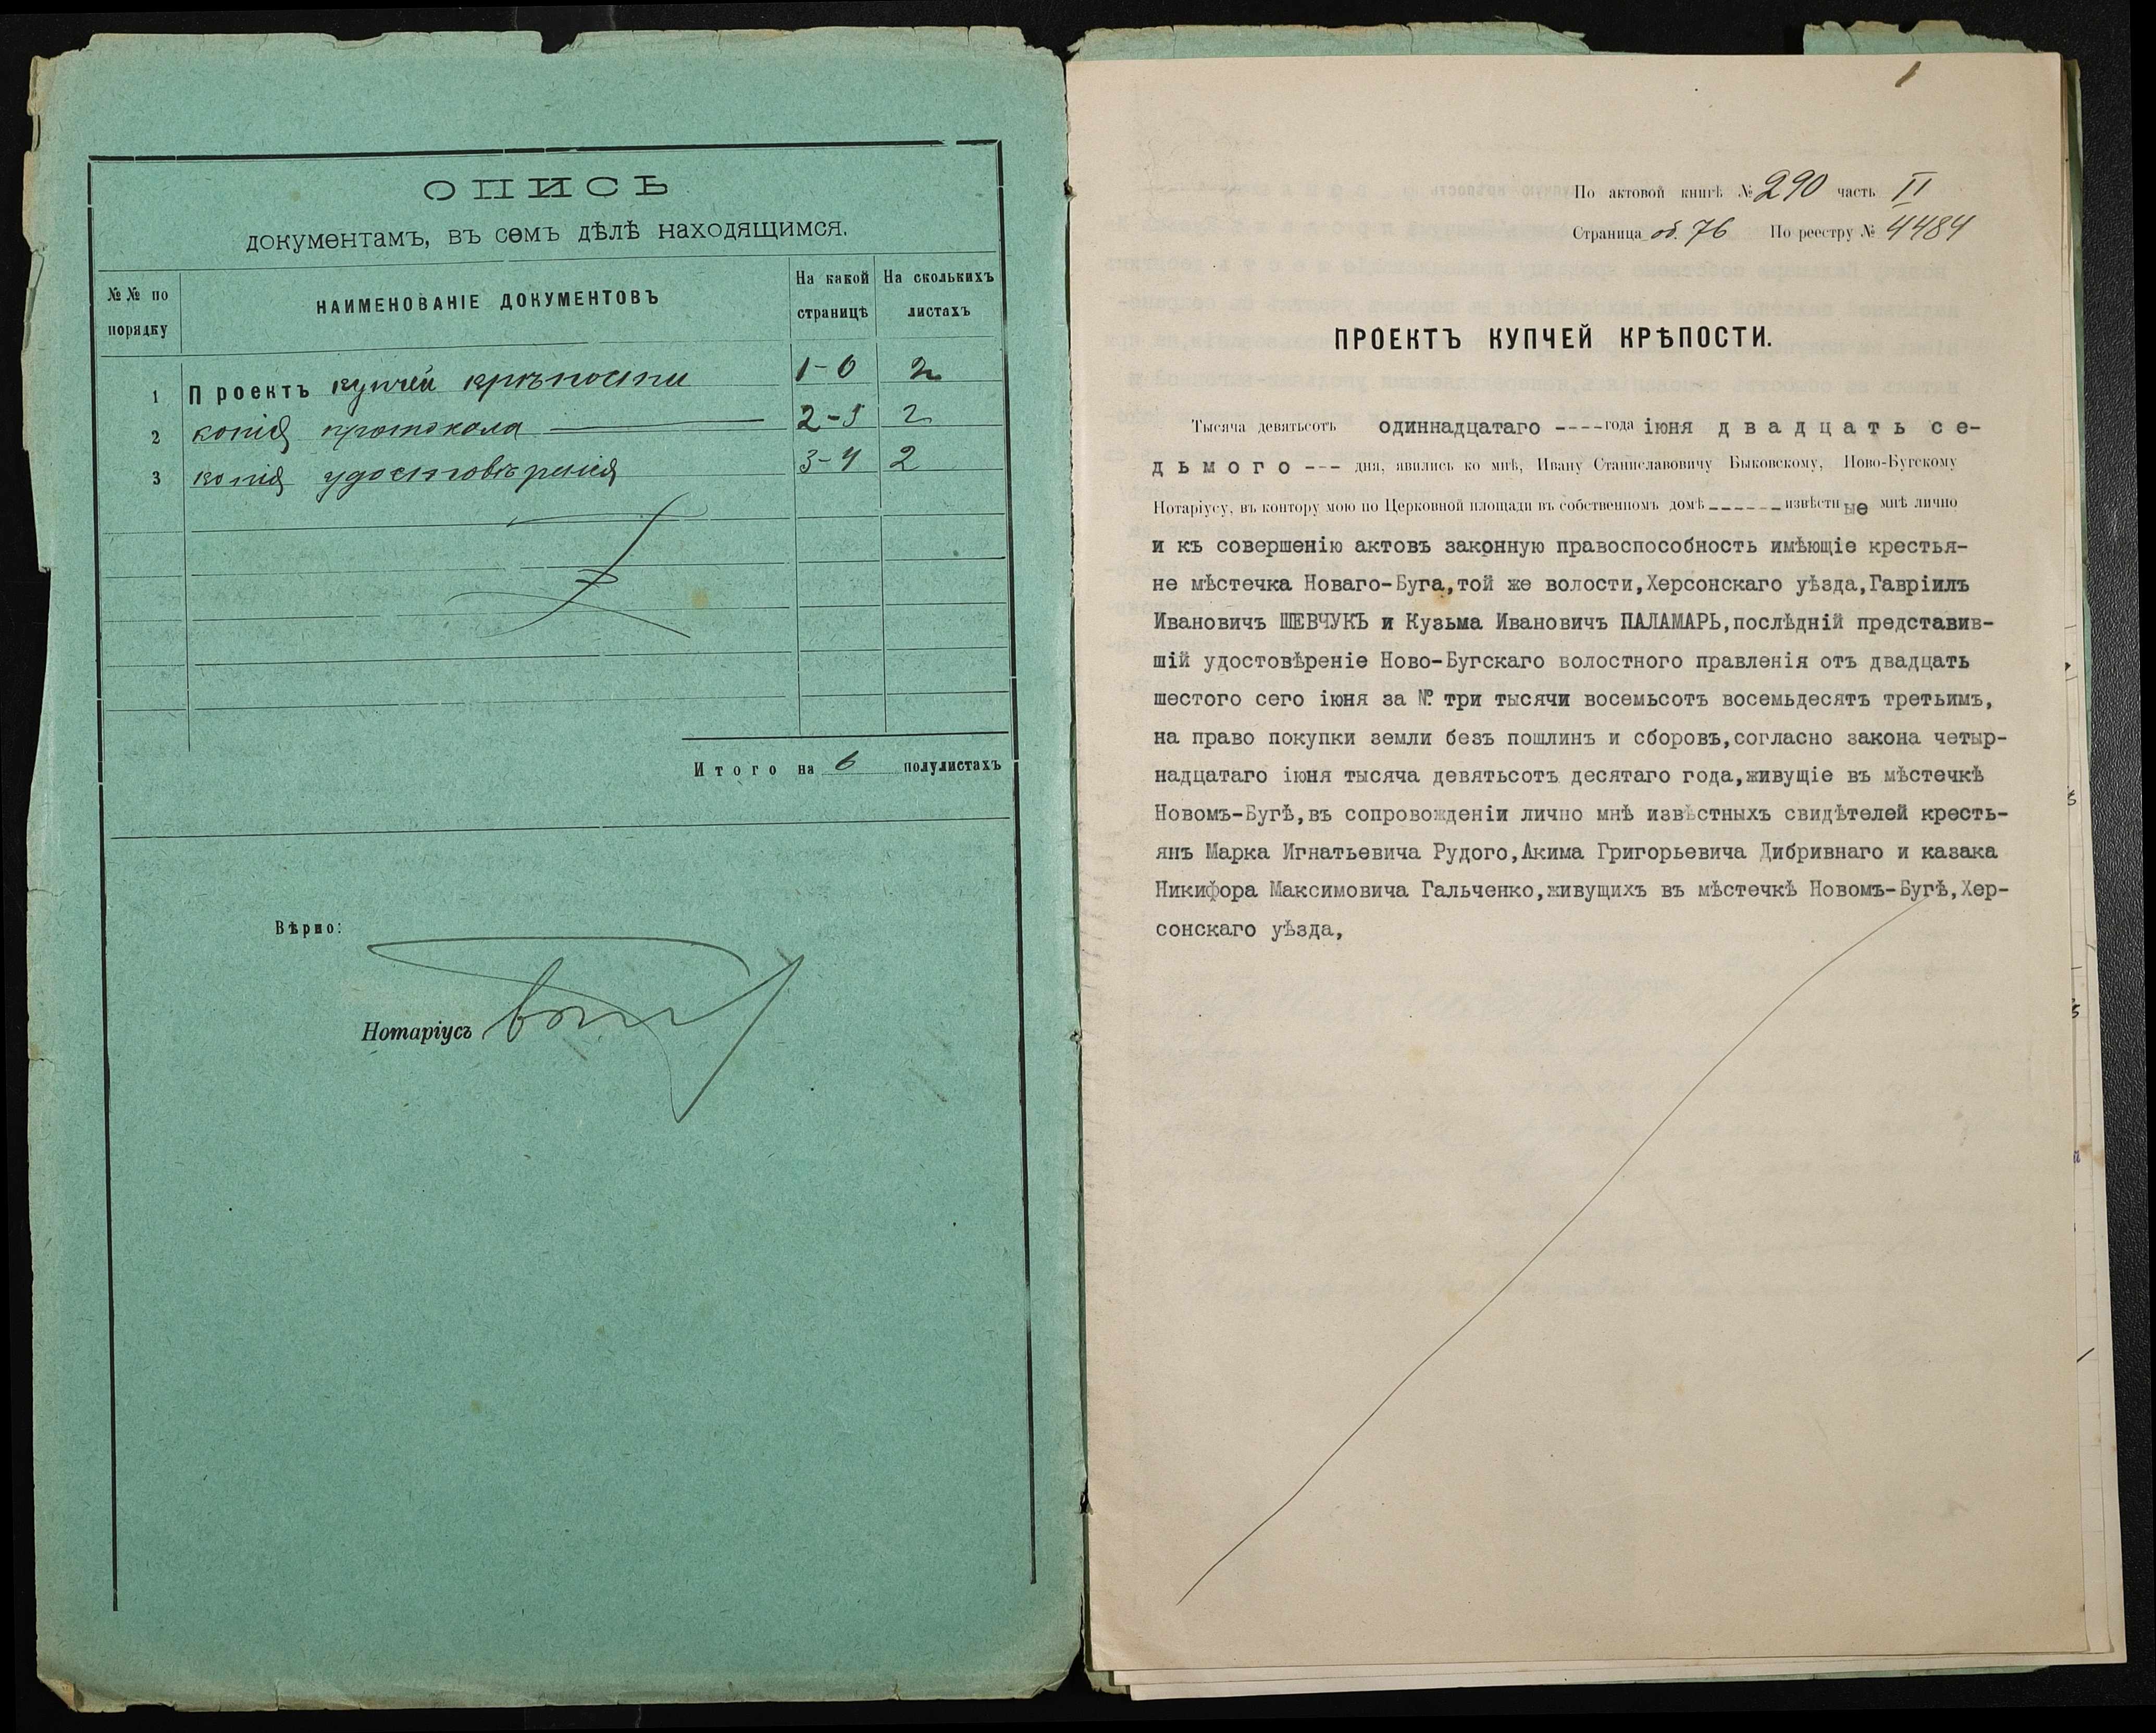 ОПИСЬ
документамъ, въ семъ дѣлѣ находящимся.
№№ по порядку
НАИМЕНОВАНІЕ ДОКУМЕНТОВЪ
На какой страницѣ
На сколькихъ листахъ
1 Проектъ купчей крѣпости 1-6 2
2 копія протокола 2-5 2
3 копія удостовѣренія 3-4 2
Итого на 6 полулистахъ
Вѣрно:
Нотаріусъ
1
По актовой книгѣ № 290 часть II
Страница об. 76 По реестру № 4484
ПРОЕКТЪ КУПЧЕЙ КРѢПОСТИ.
Тысяча девятьсотъ одиннадцатаго ----года іюня двадцать се-
дьмого --- дня, явились ко мнѣ, Ивану Станиславовичу Быковскому, Ново-Бугскому
Нотаріусу, въ контору мою по Церковной площади въ собственномъ домѣ ------извѣстные мнѣ лично
и къ совершенію актовъ законную правоспособность имѣющіе крестья-
не мѣстечка Новаго-Буга,той же волости,Херсонскаго уѣзда,Гавріилъ
Ивановичъ ШЕВЧУКЪ и Кузьма Ивановичъ ПАЛАМАРЬ,послѣдній представив-
шій удостовѣреніе Ново-Бугскаго волостного правленія отъ двадцать
шестого сего іюня за № три тысячи восемьсотъ восемьдесятъ третьимъ,
на право покупки земли безъ пошлинъ и сборовъ,согласно закона четыр-
надцатаго іюня тысяча девятьсотъ десятаго года,живущіе въ мѣстечкѣ
Новомъ-Бугѣ,въ сопровожденіи лично мнѣ извѣстныхъ свидѣтелей кресть-
янъ Марка Игнатьевича Рудого,Акима Григорьевича Дибривнаго и казака
Никифора Максимовича Гальченко,живущихъ въ мѣстечкѣ Новомъ-Бугѣ,Хер-
сонскаго уѣзда,